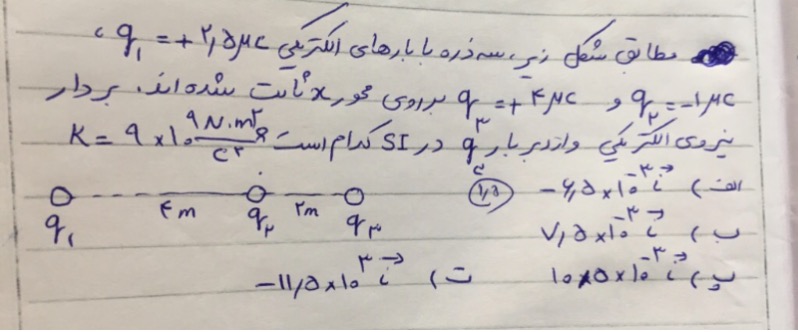 مطابق شکل زیر، سه ذره با بارهای الکتریکی q₁ = +۲,۵μc ،
q₂ = -۱μc و q₃ = +۴μc بر روی محور x ثابت شده اند. بردار
نیروی الکتریکی وارد بر بار q₃ در SI کدام است K = ۹ × ۱۰^۹ N.m²/C²
الف) -۶,۵×۱۰^-۳ i→ (۱,۵)
q₁ ۴m q₂ ۲m q₃
ب) ۷,۵×۱۰^-۳ i→
پ) ۱۰×۵×۱۰^-۳ i→ ت) -۱۱,۵×۱۰^۳ i→